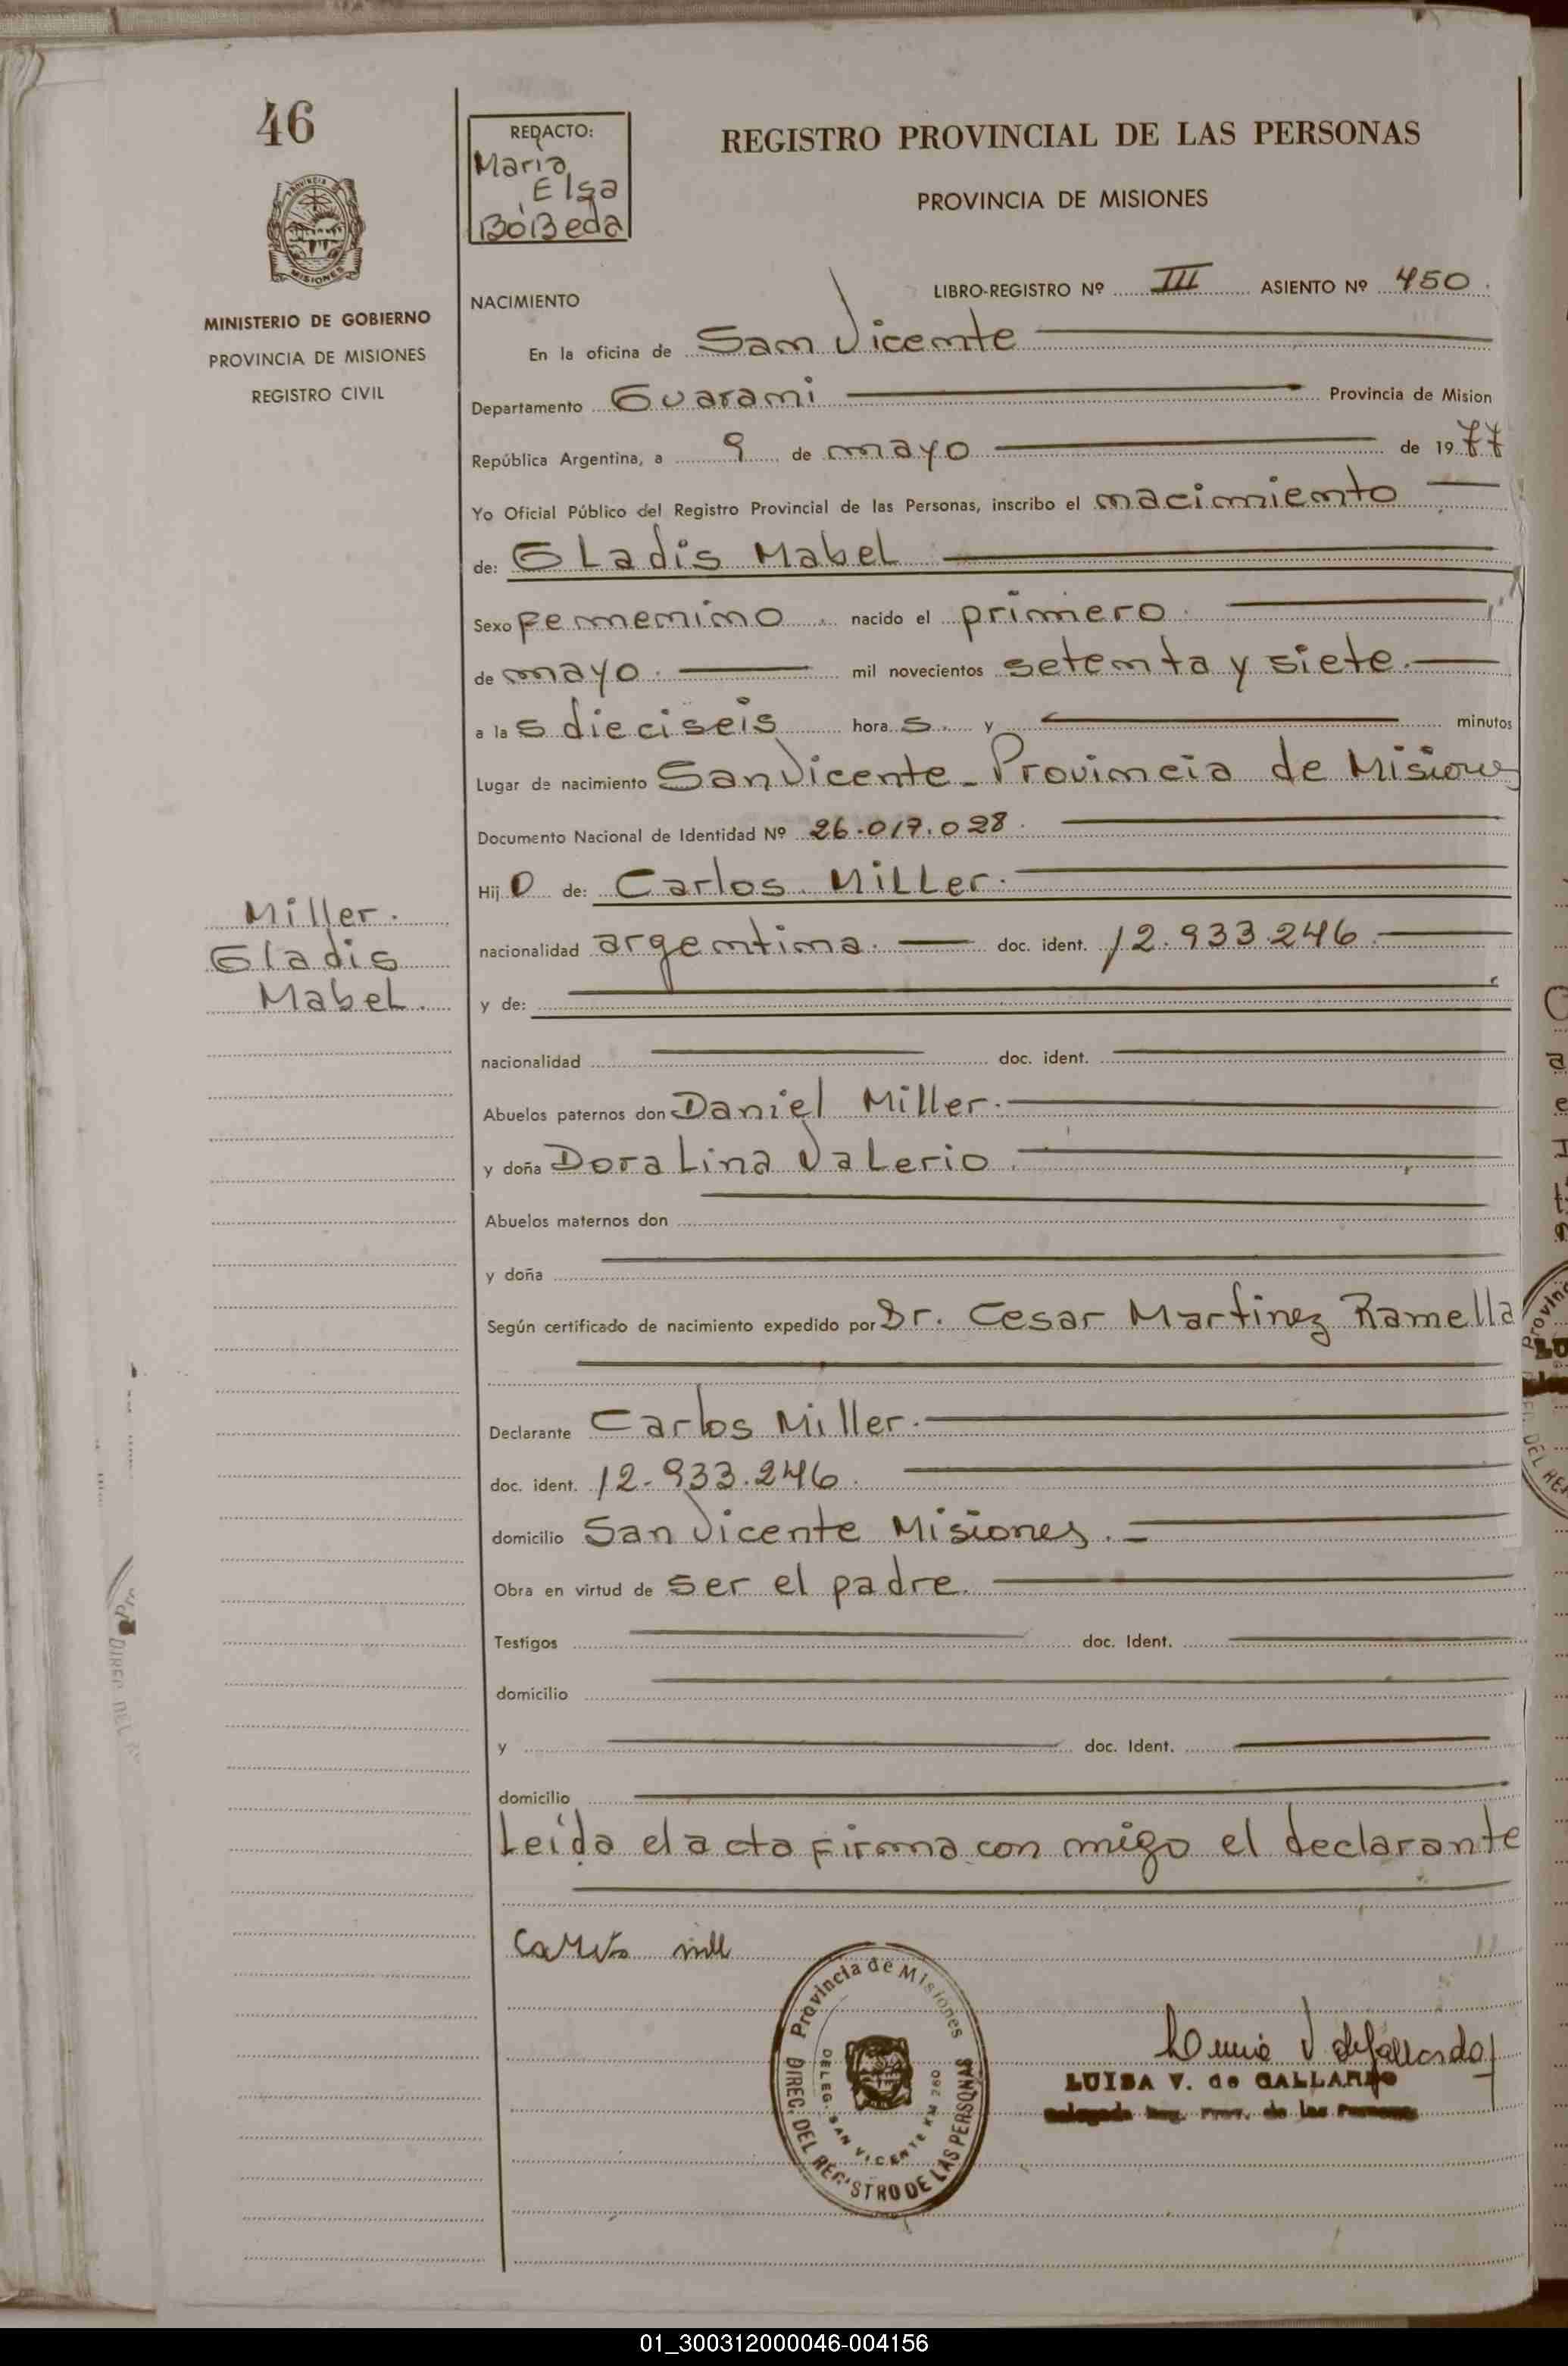 46
REDACTO:
Maria
Elsa
BoBeda
REGISTRO PROVINCIAL DE LAS PERSONAS
PROVINCIA DE MISIONES
MISIONES
MINISTERIO DE GOBIERNO
PROVINCIA DE MISIONES
REGISTRO CIVIL
NACIMIENTO
LIBRO-REGISTRO Nº III ASIENTO Nº 450.
En la oficina de San Vicente
Departamento Guarani Provincia de Mision
República Argentina, a 9 de mayo de 1977
Yo Oficial Público del Registro Provincial de las Personas, inscribo el nacimiento
de: GLadis Mabel
Sexo femenino. nacido el primero.
de mayo. mil novecientos setenta y siete.
a las dieciseis horas. y minutos
Lugar de nacimiento San Vicente - Provincia de Misiones
Documento Nacional de Identidad Nº 26.017.028.
Hijo de: Carlos MiLLer.
nacionalidad argentina. doc. ident. 12.933.246.
y de:
nacionalidad doc. ident.
Abuelos paternos don Daniel Miller.
y doña Dora Lina VaLerio.
Abuelos maternos don
y doña
Según certificado de nacimiento expedido por Dr. Cesar Martinez Ramella
Declarante Carlos Miller.
doc. ident. 12.933.246.
domicilio San Vicente Misiones.
Obra en virtud de ser el padre.
Testigos doc. Ident.
domicilio
y doc. Ident.
domicilio
Leida el acta firma con migo el declarante
Miller.
Gladis
MabeL.
Carlos mill
Provincia de Misiones
DELEG. SAN VICENTE KM 260
DIREC. DEL REGISTRO DE LAS PERSONAS
LUISA V. de GALLARDO
Delegada Reg. Prov. de las Personas
01_300312000046-004156